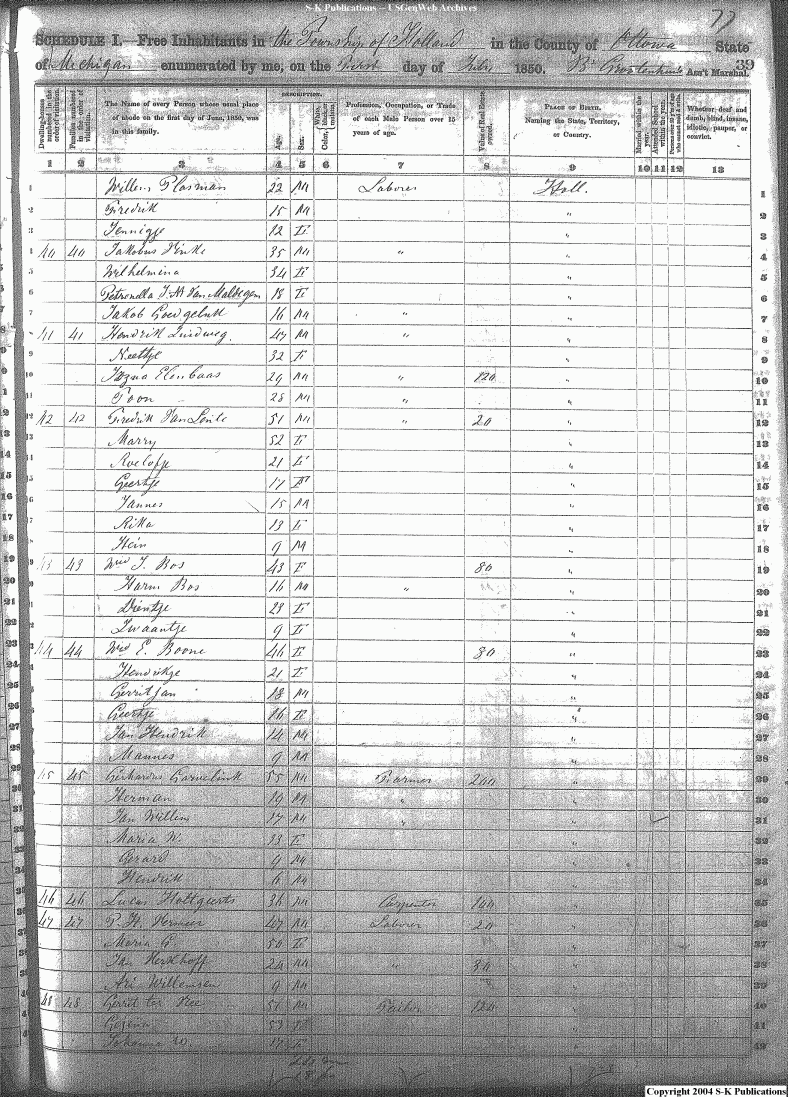 S-K Publications – USGenWeb Archives
77
SCHEDULE I.—Free Inhabitants in the Township of Holland in the County of Ottowa State
of Michigan enumerated by me, on the First day of July 1850. Ass't Marshal. 39
Dwelling-houses numbered in the order of visitation.
Families numbered in the order of visitation.
The Name of every Person whose usual place of abode on the first day of June, 1850, was in this family.
DESCRIPTION.
Age.
Sex.
Color,
Profession, Occupation, or Trade of each Male Person over 15 years of age.
Value of Real Estate owned.
PLACE OF BIRTH.
Naming the State, Territory, or Country.
Married within the year.
Attended School within the year.
Whether deaf and dumb, blind, insane, idiotic, pauper, or convict.
1 2 3 4 5 6 7 8 9 10 11 12 13
1 Willem Plasman 22 M Laborer Holl. 1
2 Fredrik 15 M " 2
3 Jennigje 12 F " 3
40 40 Jakobus 35 M " " 4
5 Wilhelmina 34 F " 5
6 Petronella Van Maldegem 18 F " 6
7 Jakob 16 M " " 7
41 41 Hendrik 47 M " " 8
9 Neeltje 32 F " 9
10 Elenbaas 29 M " 120 " 10
11 28 M " " 11
42 42 Fredrik Van Lente 51 M " 20 " 12
13 Marry 52 F " 13
14 Roelofje 21 F " 14
15 Geertje 17 F " 15
16 Jannes 15 M " 16
17 Rika 13 F " 17
Hein 9 M " 18
43 43 Wed J. Bos 43 F 80 " 19
Harm Bos 16 M " " 20
Dientje 28 F " 21
Zwaantje 9 F " 22
44 44 Wed E. Boone 46 F 80 " 23
Hendrikje 21 F " 24
Gerrit Jan 18 M " 25
Geertje 16 F " 26
Jan Hendrik 14 M " 27
Mannes 9 M " 28
45 45 Gerhardus Garvelink 55 M Farmer 200 " 29
Herman 19 M " " 30
Jan Willem 17 M " " 31
Maria W. 13 F " 32
Gerard 9 M " 33
Hendrik 6 M " 34
46 46 Lucas Holtgeerts 36 M Carpenter 140 " 35
47 47 P. H. Vermeer 47 M Laborer 20 " 36
Maria G 50 F " 37
Jan Kerkhoff 24 M " 30 " 38
Ari Willemsen 9 M " 39
48 48 Gerrit ter Vree 51 M Tailor 120 " 40
Gezina 53 F " 41
Johanna W 17 F " 42
Copyright 2004 S-K Publications